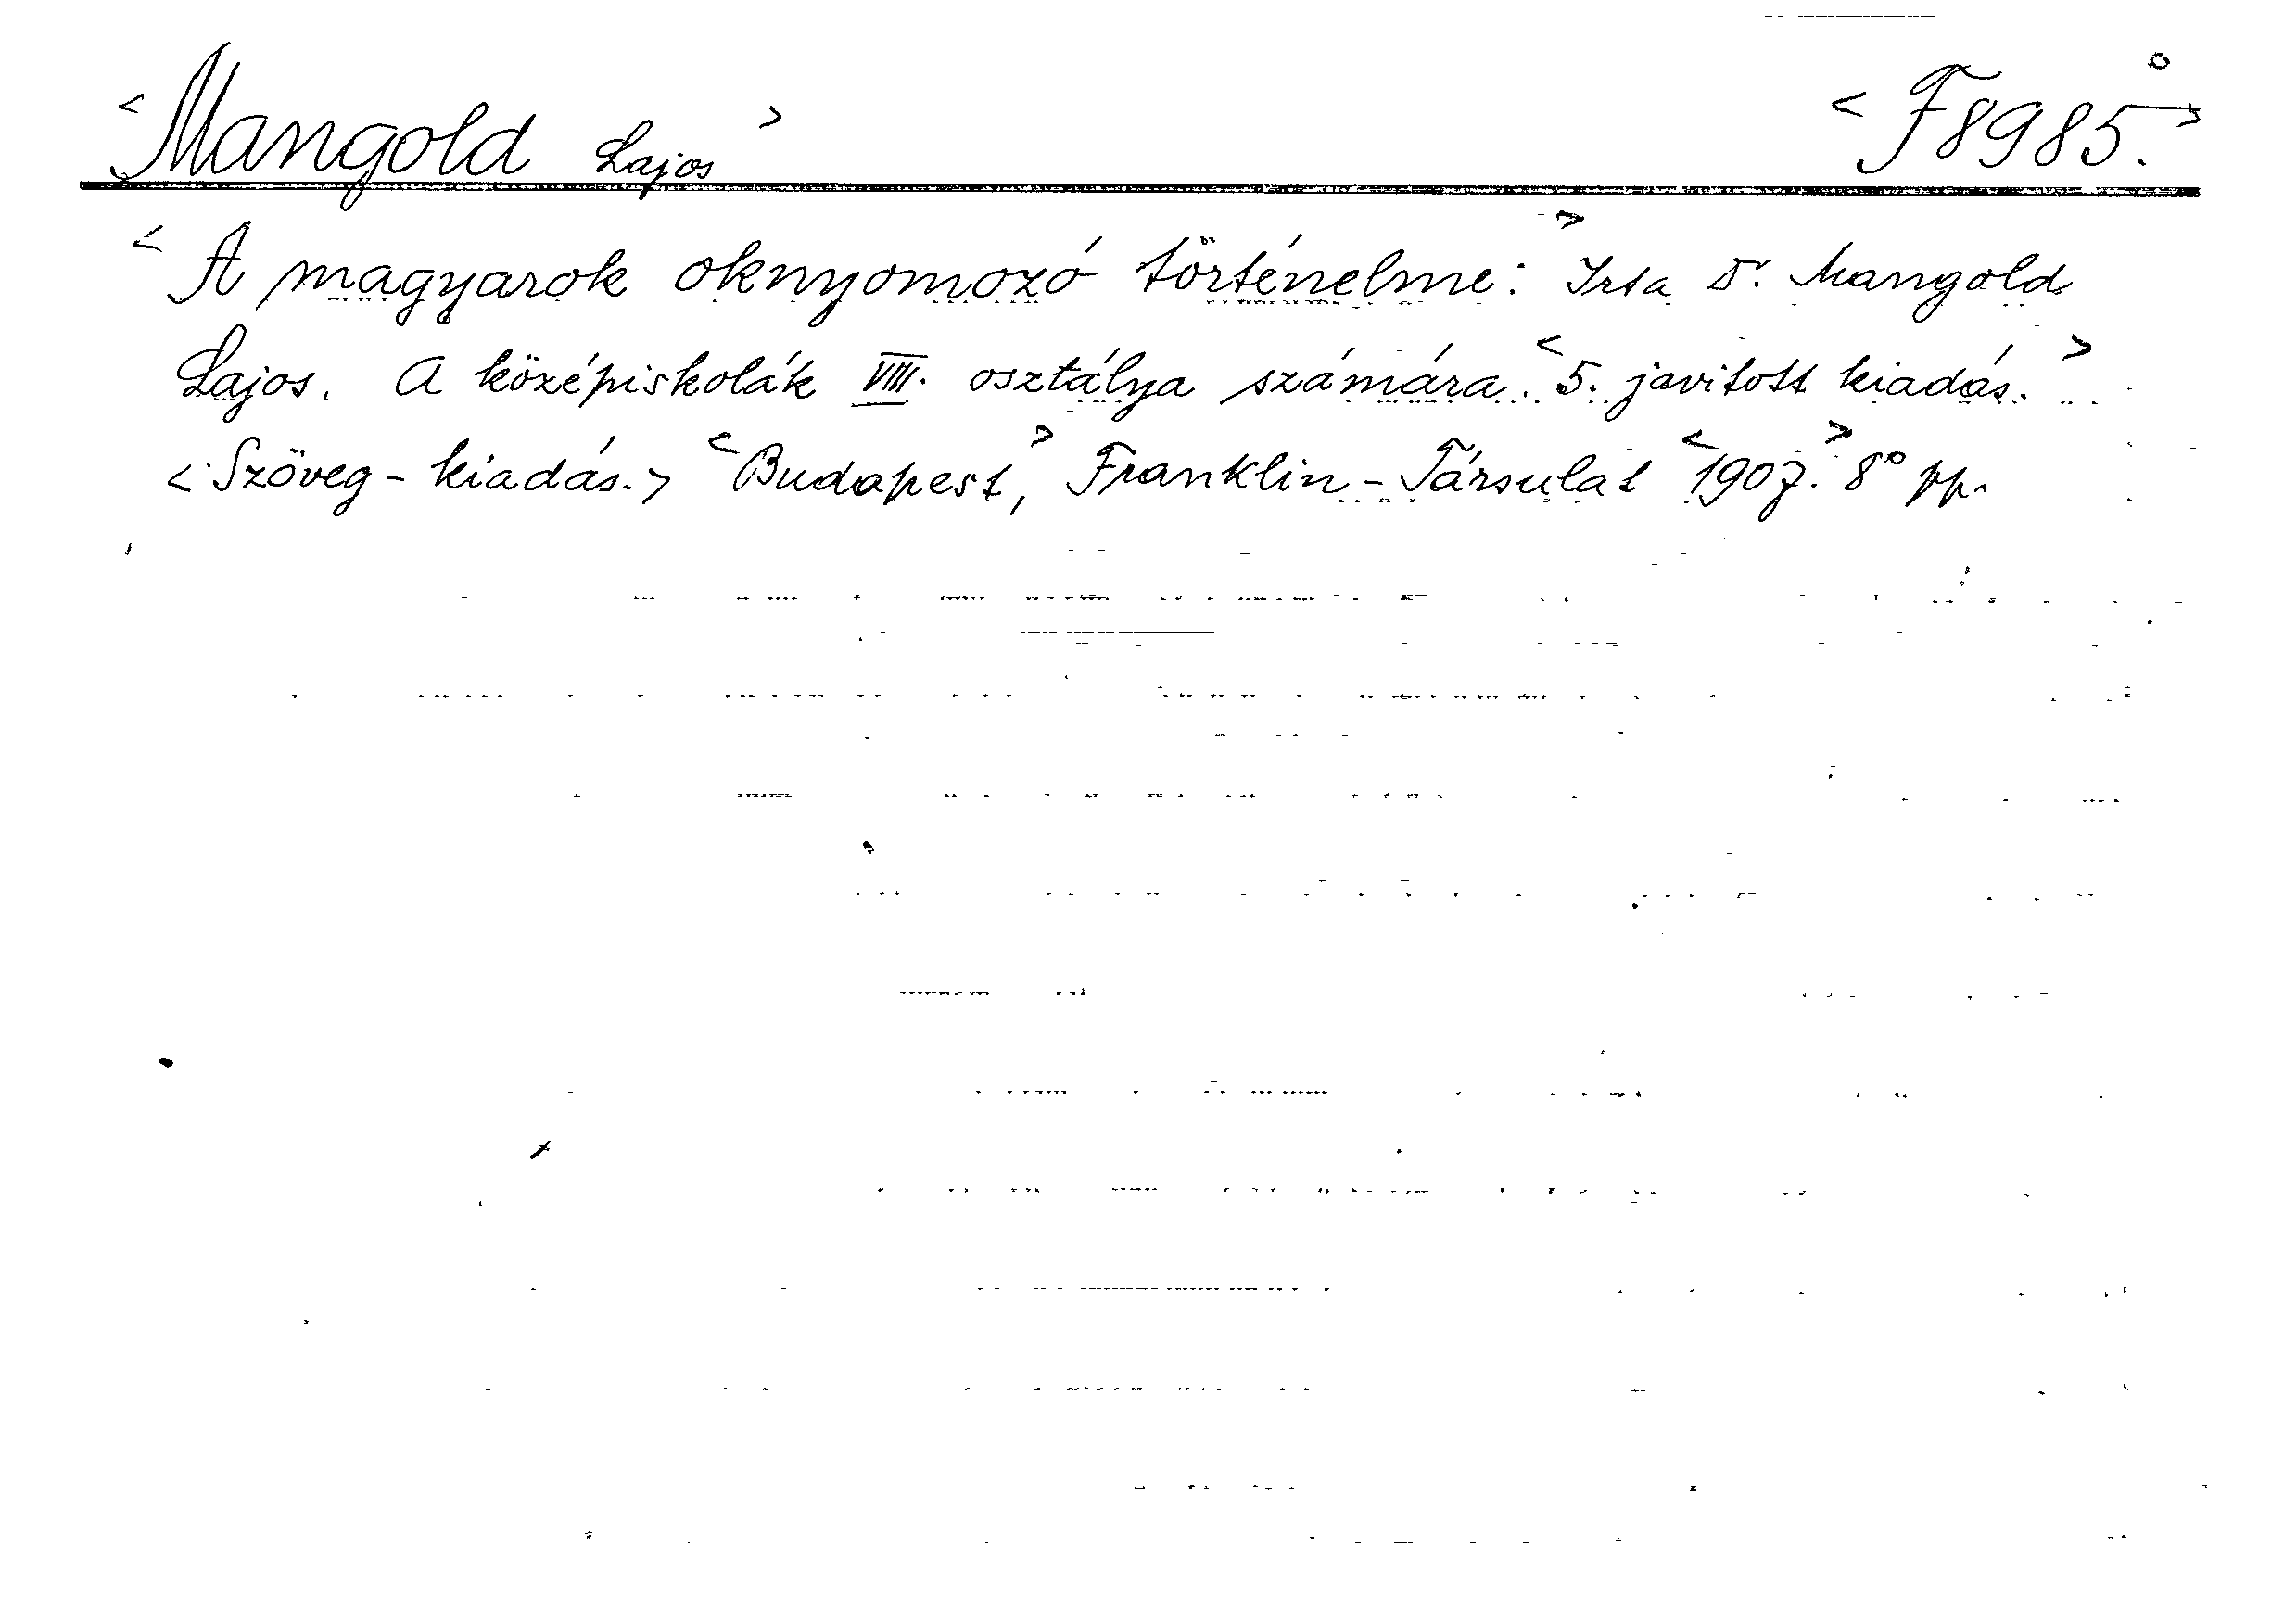 <Mangold Lajos> <F8985.>
<A magyarok oknyomozó történelme:> Irta Dr. Mangold
Lajos. A középiskolák VIII. osztálya számára. <5. javitott kiadás.>
<Szöveg-kiadás.> <Budapest,> Franklin-Társulat <1907.> 8° pp.